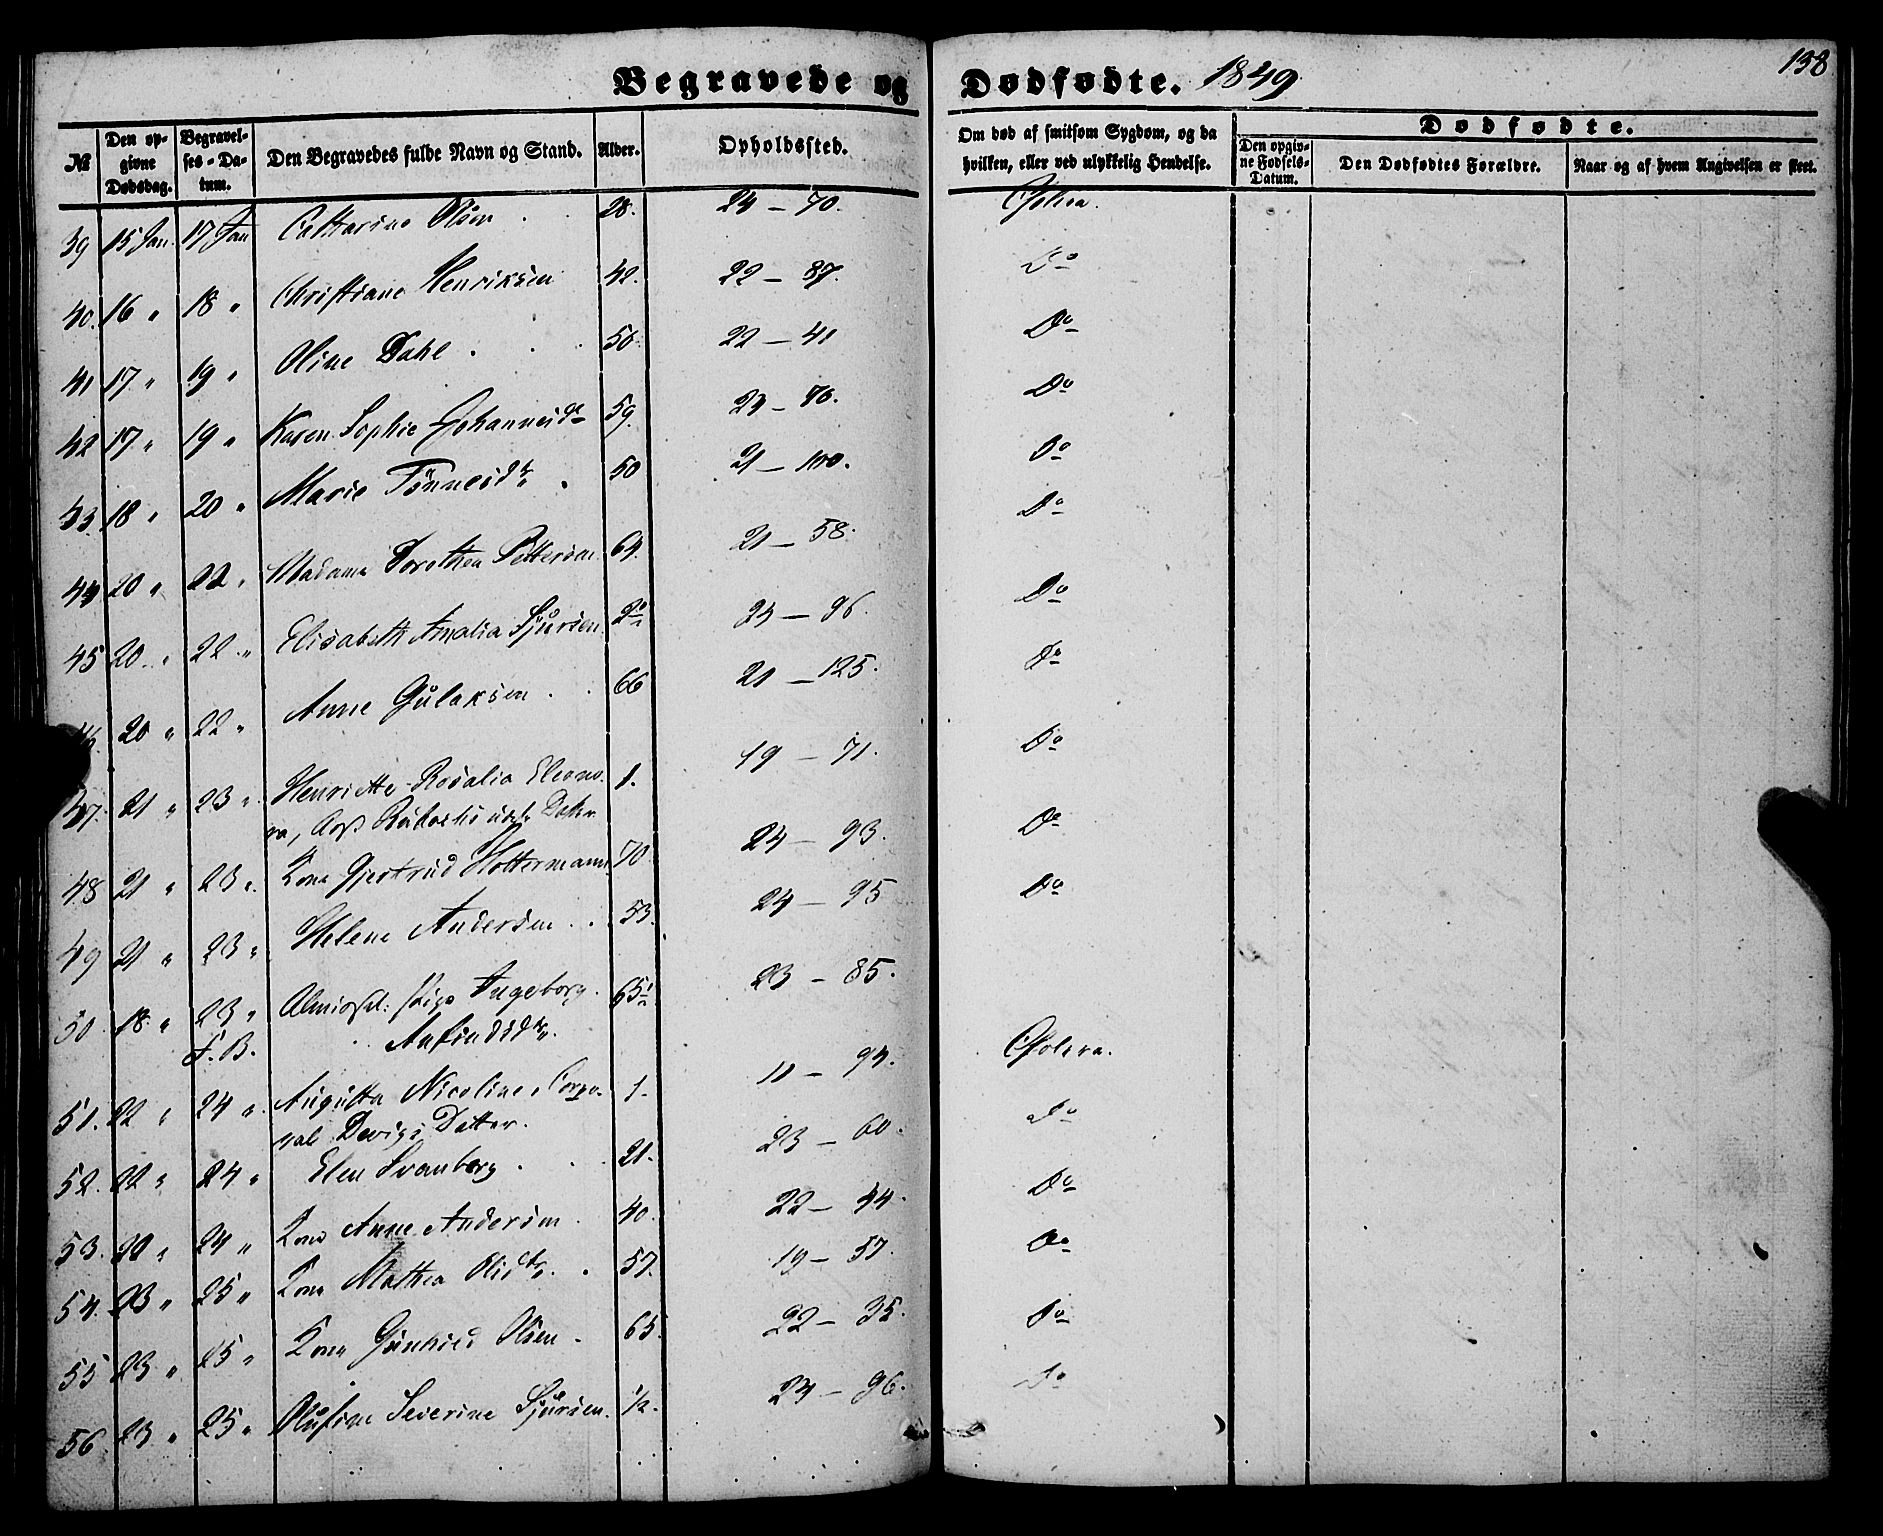 Begravede og Dødfødte. 1849
138
№ | Den opgivne Dødsdag. | Begravelses-Datum. | Den Begravedes fulde Navn og Stand. | Alder. | Opholdssted. | Om død af smitsom Sygdom, og da hvilken, eller ved ulykkelig Hendelse. | Dødfødte. | Den opgivne Fødsels-Datum. | Den Dødfødtes Forældre. | Naar og af hvem Angivelsen er skeet.
39 15 Jan. 17 Jan Catharine Olsen . . 28. 24 – 70. Cholera.
40. 16 " 18 " Christiane Henriksen 42. 22 – 87. Do
41 17 " 19 " Oline Dahl . . . 56. 22 – 41 Do
42 17 " 19 " Karen Sophie Johannesdr 59. 24 – 76. Do
43. 18 " 20 " Marie Tönnesdr . 50 21 – 100. Do
44 20 " 22 " Madame Dorothea Pettersen 64. 21 – 58. Do
45 20 " 22 " Elisabeth Amalia Sjursen 24 – 96. Do
46. 20 " 22 " Anne Gulaksen . . 66 21 – 125. Do
47. 21 " 23 " Henriette Rosalia Eleono- 1. 19 – 71. Do
ra, Datter
48 21 " 23 " Kone Gjertrud Holtermann 70 24 – 93. Do
49 21 " 23 " Helene Andersen . . 53. 24 – 95 Do
50 18 " 23 " Pige Ingeborg 65 23 – 85.
F. B. Anfindsdr.
51. 22 " 24 " Augusta Nicoline, Corpo- 1. 11 – 94. Cholera.
ral Datter.
52. 22 " 24 " Elen Svanberg . . . 21. 23 – 60. Do
53. 20 " 24 " Kone Anne Andersen . 40. 22 – 44. Do
54. 23 " 25 " Kone Mathea Olsdr. . 57. 19 – 57. Do
55 23 " 25 " Kone Gunhild Olsen . 65. 22 – 35. Do
56. 23 " 25 " Olufine Severine Sjursen. ½. 24 – 96. Do